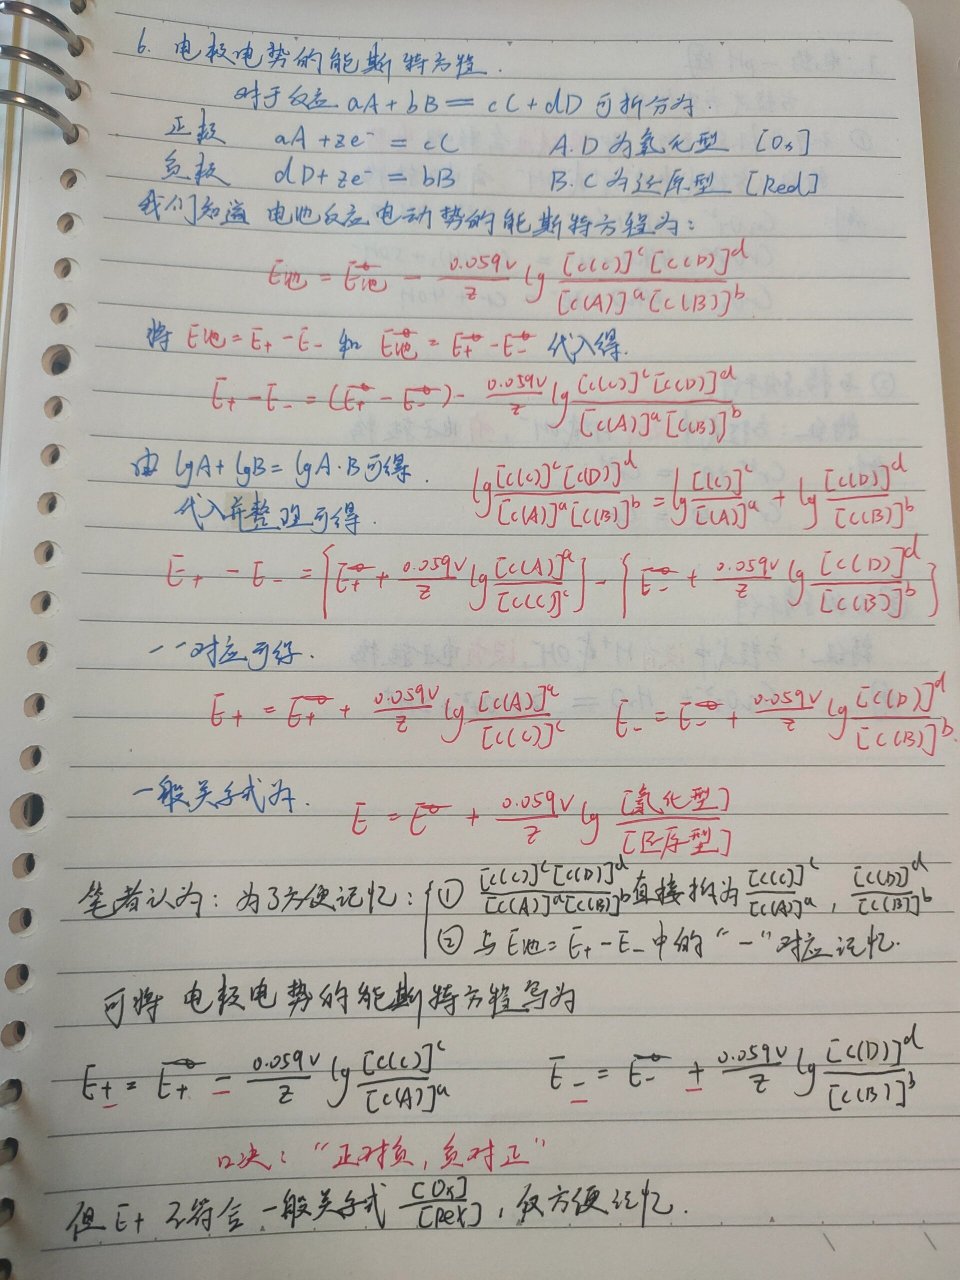 6. 电极电势的能斯特方程.
对于反应 aA+bB══cC+dD 可拆分为.
正极 aA+ze⁻=cC A.D为氧化型 [Ox]
负极 dD+ze⁻=bB B.C为还原型 [Red]
我们知道 电池反应电动势的能斯特方程为:
E池 = E池^⊖ - 0.059V/z lg [c(C)]^c [c(D)]^d / [c(A)]^a [c(B)]^b
将 E池=E₊-E₋ 和 E池^⊖=E₊^⊖-E₋^⊖ 代入得.
E₊-E₋ = (E₊^⊖-E₋^⊖) - 0.059V/z lg [c(C)]^c [c(D)]^d / [c(A)]^a [c(B)]^b
由 lgA+lgB=lgA·B可得. lg [c(C)]^c [c(D)]^d / [c(A)]^a [c(B)]^b = lg [c(C)]^c / [c(A)]^a + lg [c(D)]^d / [c(B)]^b
代入并整理可得.
E₊ - E₋ = {E₊^⊖ + 0.059V/z lg [c(A)]^a / [c(C)]^c} - {E₋^⊖ + 0.059V/z lg [c(D)]^d / [c(B)]^b}
一一对应可得.
E₊ = E₊^⊖ + 0.059V/z lg [c(A)]^a / [c(C)]^c E₋ = E₋^⊖ + 0.059V/z lg [c(D)]^d / [c(B)]^b.
一般关系式为.
E = E^⊖ + 0.059V/z lg [氧化型] / [还原型]
笔者认为: 为了方便记忆: { ① [c(C)]^c [c(D)]^d / [c(A)]^a [c(B)]^b 直接拆为 [c(C)]^c / [c(A)]^a , [c(D)]^d / [c(B)]^b
② 与E池=E₊-E₋中的“-”对应记忆.
可将 电极电势的能斯特方程写为
E₊ = E₊^⊖ - 0.059V/z lg [c(C)]^c / [c(A)]^a E₋ = E₋^⊖ + 0.059V/z lg [c(D)]^d / [c(B)]^b
口决: “正对负, 负对正”
但 E₊ 不符合 一般关系式 [Ox]/[Rex], 仅方便记忆.